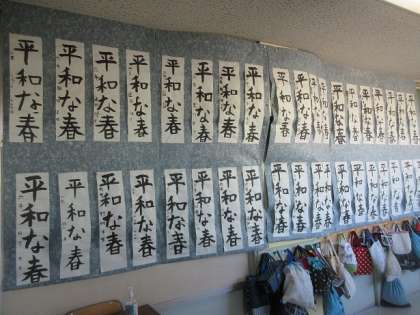 平和な春 平和な春 平和な春 平和な春 平和な春 平和な春 平和な春 平和な春 平和な春 平和な春 平和な春 平和な春 平和な春 平和な春 平和な春 平和な春 平和な春
平和な春 平和な春 平和な春 平和な春 平和な春 平和な春 平和な春 平和な春 平和な春 平和な春 平和な春 平和な春 平和な春 平和な春 平和な春 平和な春 平和な春